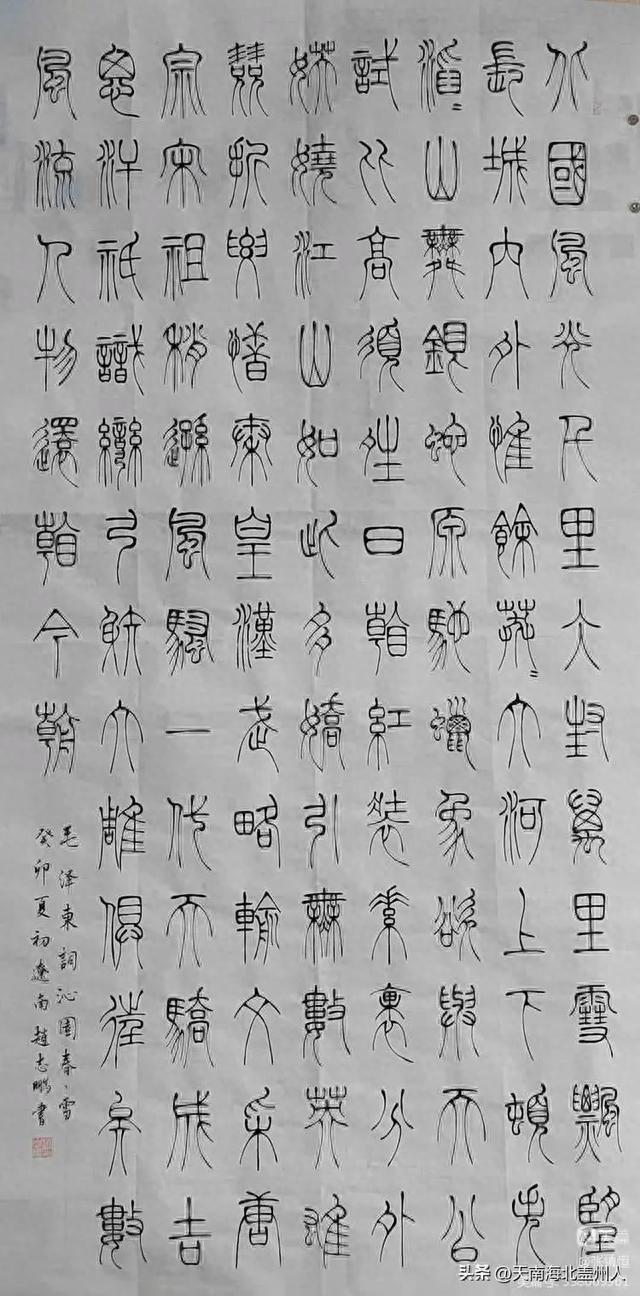 北國風光千里冰封萬里雪飄望
長城内外惟餘莽〻大河上下頓失
滔〻山舞銀蛇原馳蠟象欲與天公
試比高須晴日看紅裝素裹分外
妖嬈江山如此多嬌引無數英雄
競折腰惜秦皇漢武略輸文采唐
宗宋祖稍遜風騷一代天驕成吉
思汗祇識彎弓射大雕俱往矣數
風流人物還看今朝
毛泽東詞沁園春、雪
癸卯夏初遼南趙志鵬書
头条 @天南海北盖州人